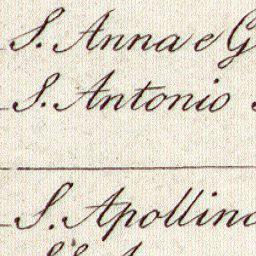 S. Anna e G
S. Antonio
S. Apollina